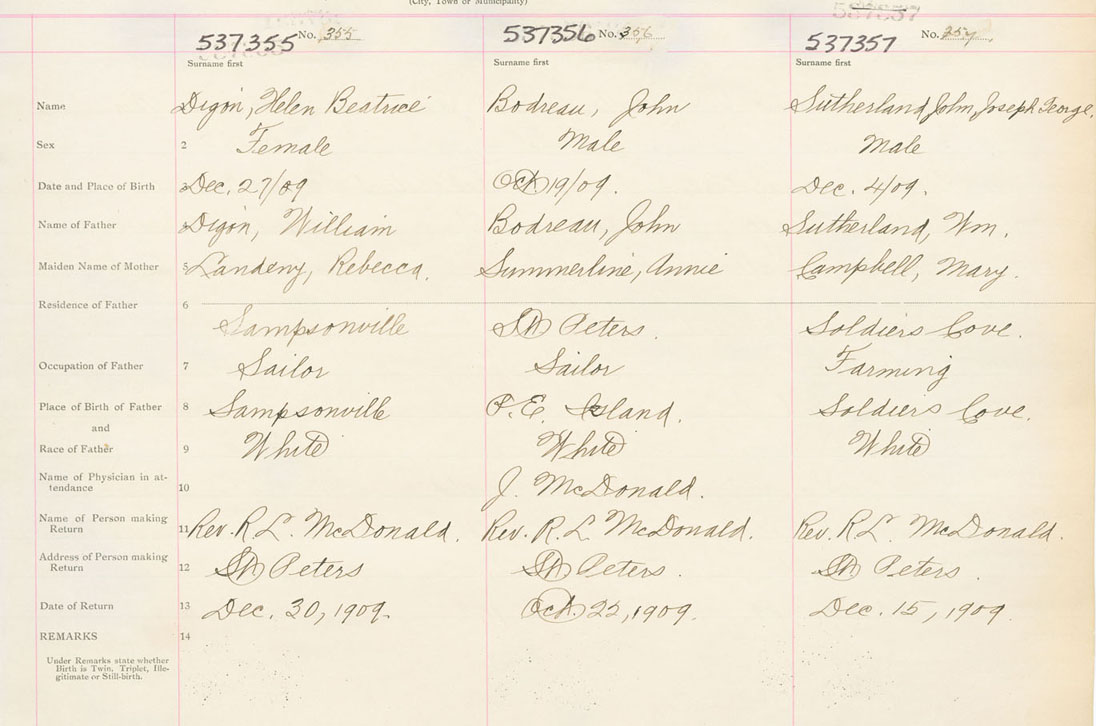 (City, Town or Municipality)
537355 No. 355 537356 No. 356 537357 No. 357
Surname first Surname first Surname first
Name Digon, Helen Beatrice Bodreau, John Sutherland, John, Joseph George.
Sex 2 Female Male Male
Date and Place of Birth 3 Dec. 27/09 Oct 19/09. Dec. 4/09.
Name of Father Digon, William Bodreau, John Sutherland, Wm.
Maiden Name of Mother 5 Landeny, Rebecca. Summerline, Annie Campbell, Mary.
Residence of Father 6
Sampsonville St. Peters. Soldiers Cove.
Occupation of Father 7 Sailor Sailor Farming
Place of Birth of Father 8 Sampsonville P. E. Island. Soldiers Cove.
and
Race of Father 9 White White White
Name of Physician in at-
tendance 10 J. McDonald.
Name of Person making
Return 11 Rev. R. L. McDonald. Rev. R. L. McDonald. Rev. R. L. McDonald.
Address of Person making
Return 12 St. Peters St. Peters. St. Peters.
Date of Return 13 Dec. 30, 1909. Oct 22, 1909. Dec. 15, 1909.
REMARKS 14
Under Remarks state whether
Birth is Twin, Triplet, Ille-
gitimate or Still-birth.